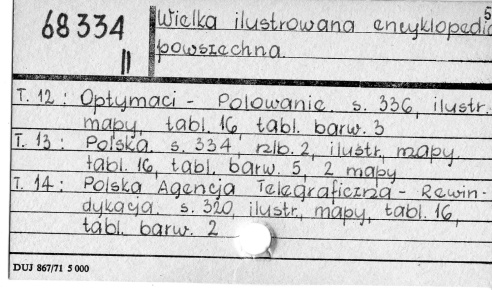 5
68334 Wielka ilustrowana encyklopedia
II powszechna.
T. 12: Optymaci - Polowanie, s. 336, ilustr.
mapy, tabl. 16, tabl. barw. 3
T. 13: Polska. s. 334, nlb. 2, ilustr., mapy,
tabl. 16, tabl. barw. 5, 2 mapy
T. 14: Polska Agencja Telegraficzna - Rewin-
dykacja. s. 320, ilustr., mapy, tabl. 16,
tabl. barw. 2
DUJ 867/71 5 000